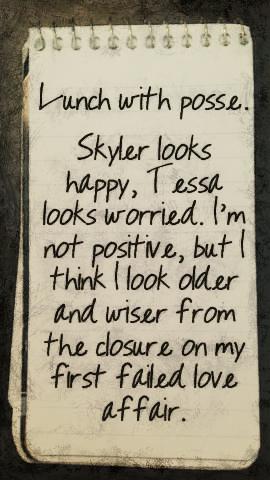 Lunch with posse.
Skyler looks
happy, Tessa
looks worried. I'm
not positive, but I
think I look older
and wiser from
the closure on my
first failed love
affair.